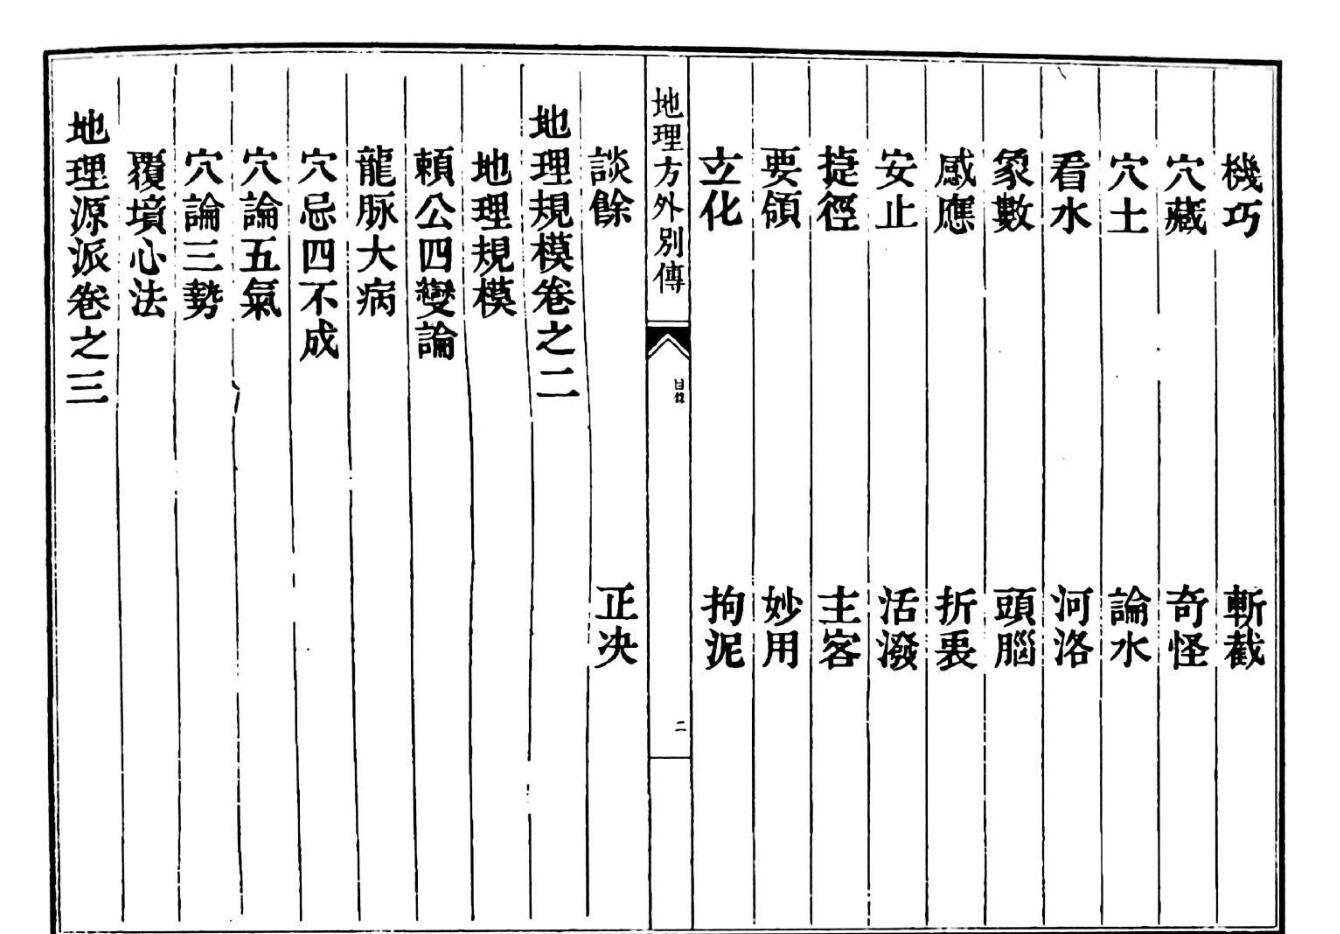 機巧 斬截
穴藏 奇怪
穴土 論水
看水 河洛
象數 頭腦
感應 折衷
安止 活潑
捷徑 主客
要領 妙用
立化 拘泥
地理方外別傳 目錄 二
談餘 正决
地理規模卷之二
地理規模
賴公四變論
龍脈大病
穴忌四不成
穴論五氣
穴論三勢
覆墳心法
地理源派卷之三